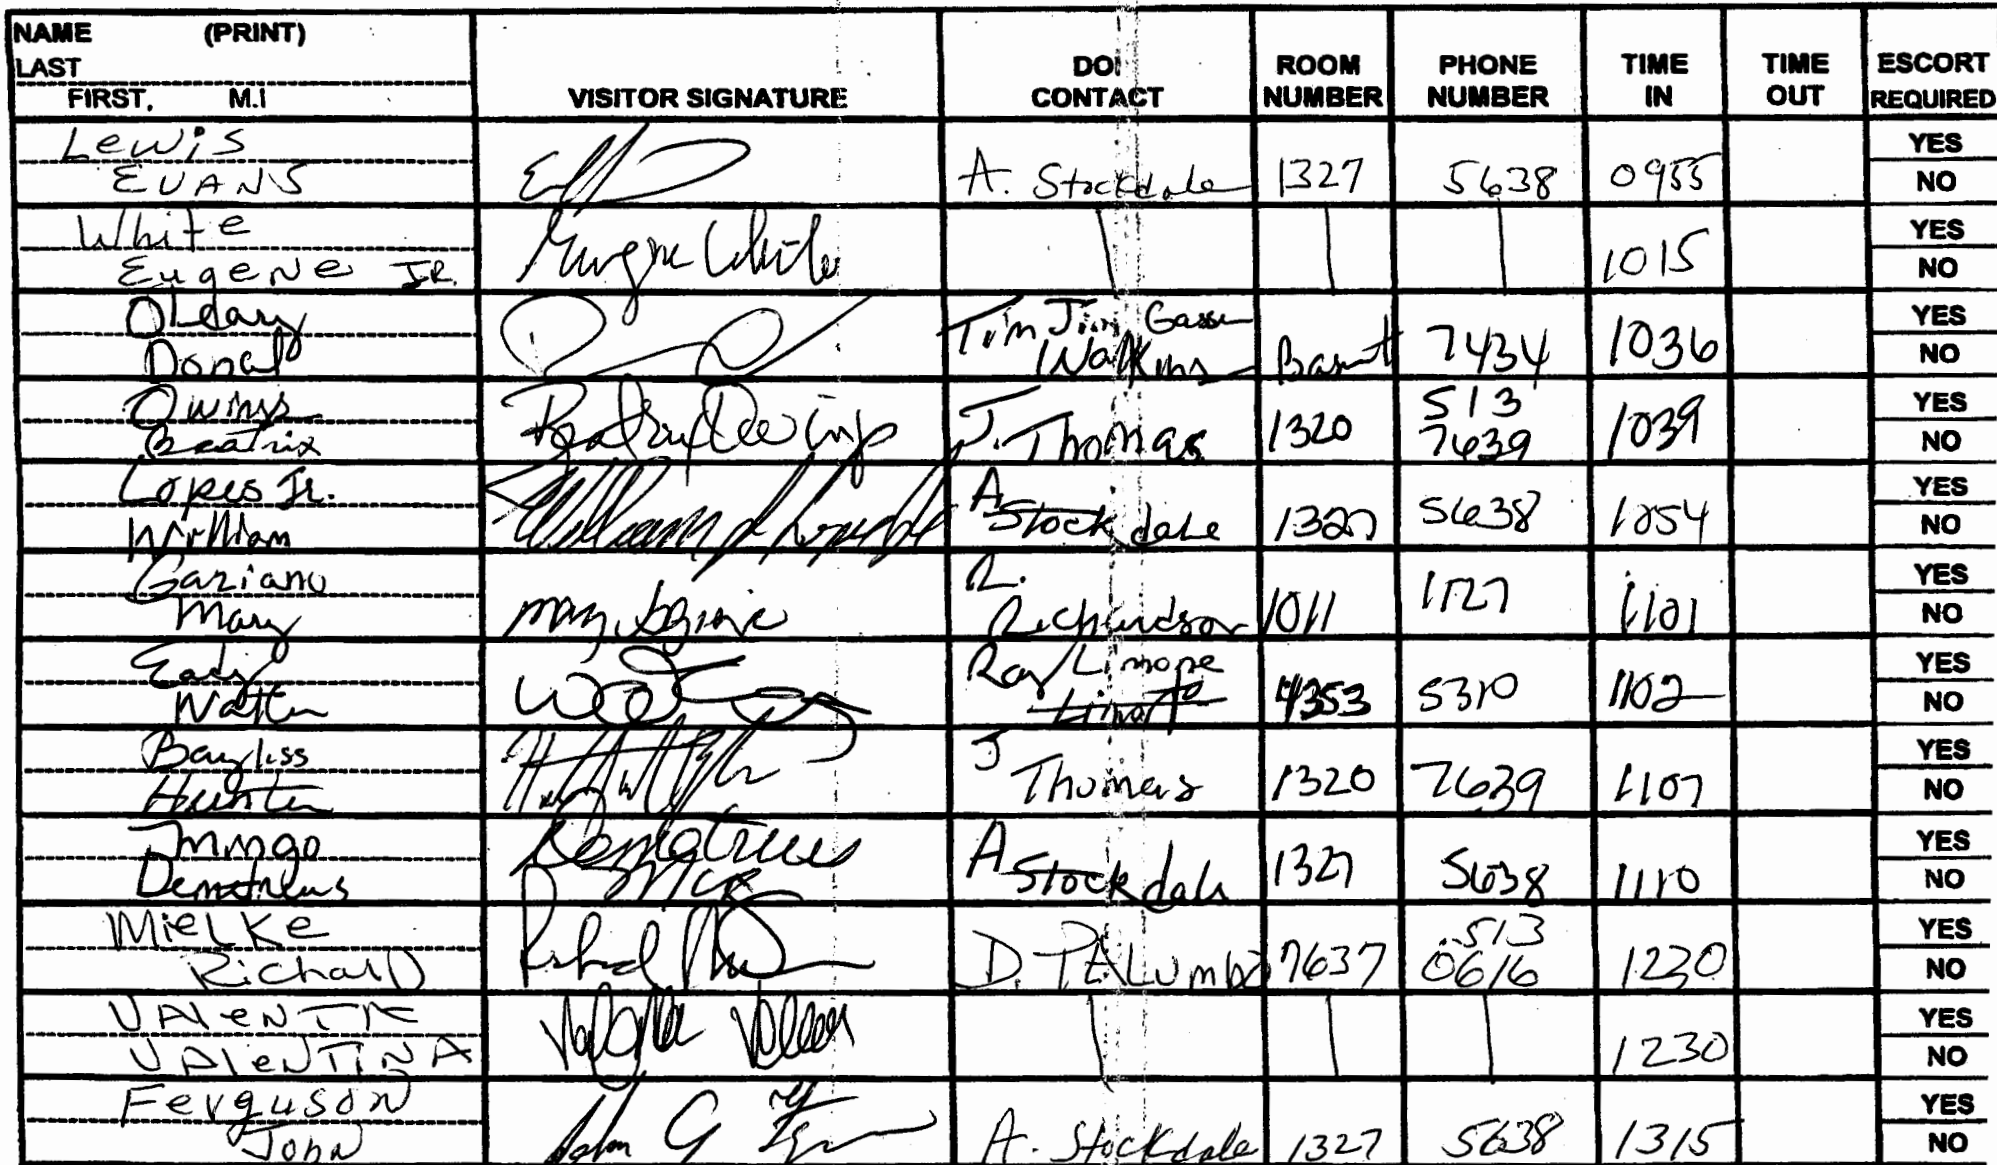 NAME (PRINT)
LAST
FIRST, M.I
VISITOR SIGNATURE
DOI CONTACT
ROOM NUMBER
PHONE NUMBER
TIME IN
TIME OUT
ESCORT REQUIRED
Lewis
EVANS
A. Stockdale 1327 5638 0955 YES NO
White
Eugene JR. Eugene White 1015 YES NO
Oleary
Donald
Tim Jim
Watkins 7434 1036 YES NO
Owings
Beatrix Beatrix Owings J. Thomas 1320 513 7639 1039 YES NO
Lopes Jr.
William A Stockdale 1327 5638 1054 YES NO
Gaziano
Mary R. Richardson 1011 1727 1101 YES NO
Eady
Walter Ray Limone 4353 5310 1102 YES NO
Bayliss
Hunter J Thomas 1320 7639 1107 YES NO
Mingo
Demetrius Demetrius A Stockdale 1327 5638 1110 YES NO
Mielke
Richard D. PALumbo 7637 513 0616 1230 YES NO
VALeNTiNA 1230 YES NO
Ferguson
John A. Stockdale 1327 5638 1315 YES NO